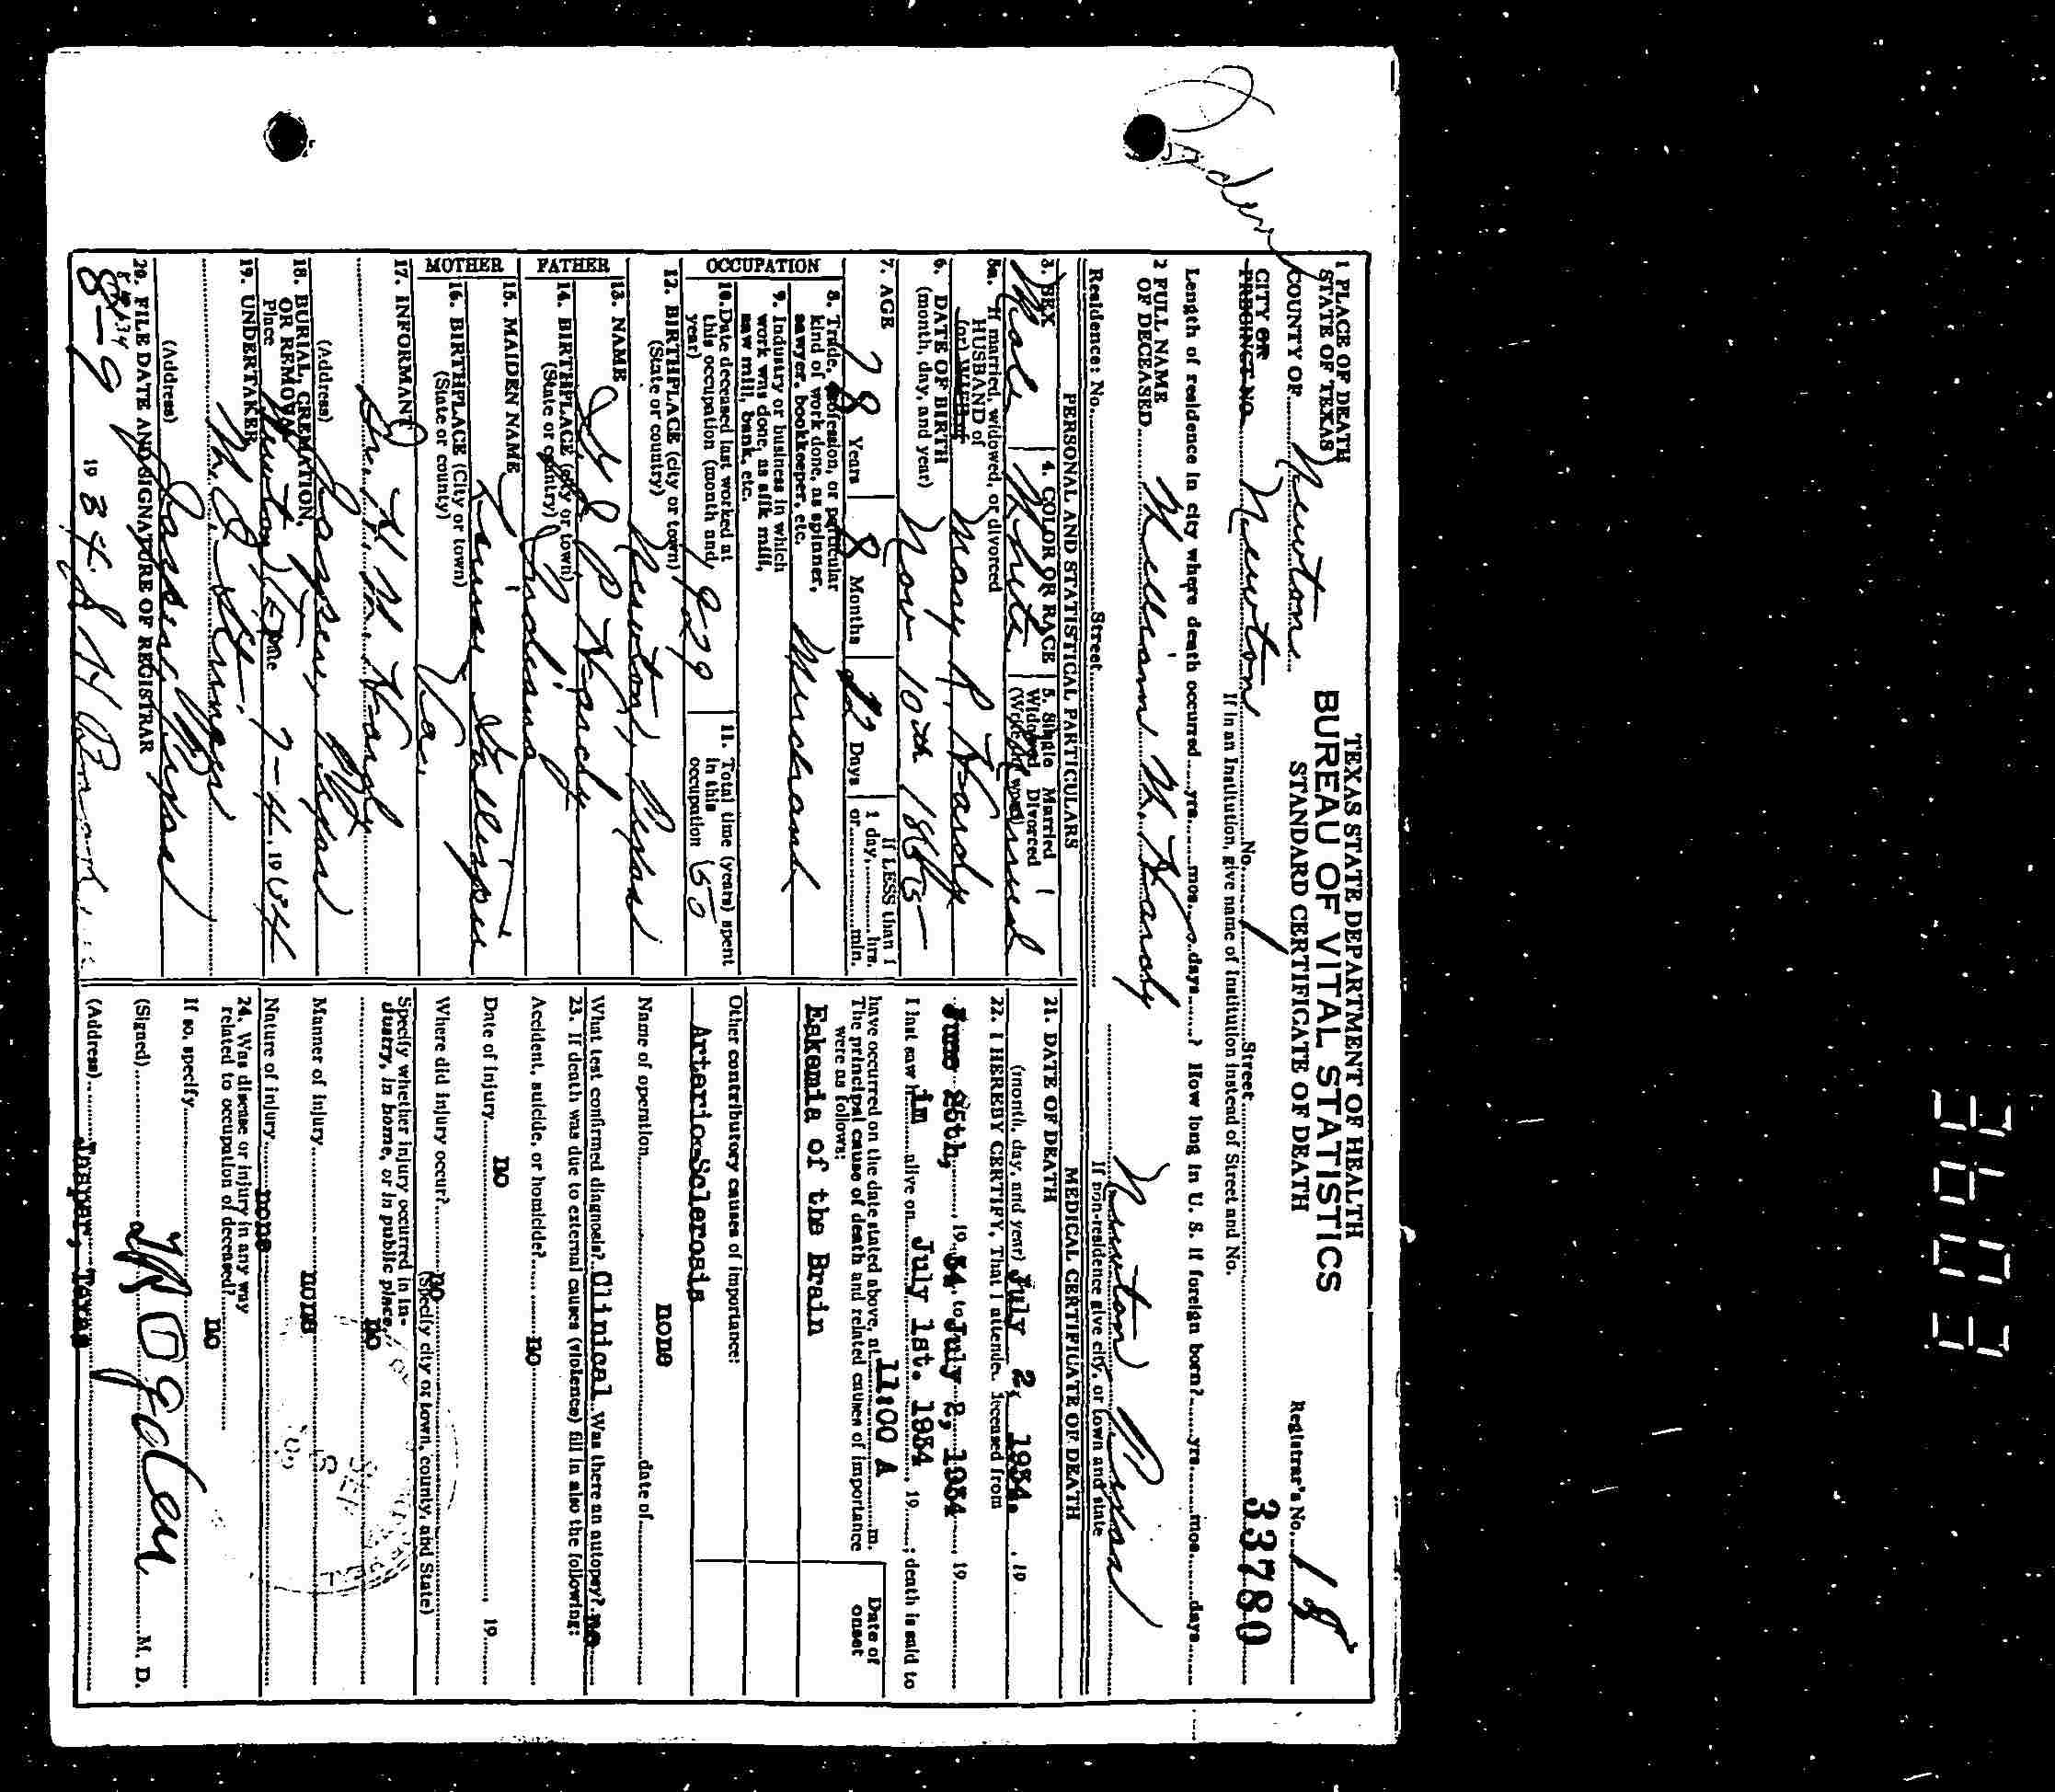 TEXAS STATE DEPARTMENT OF HEALTH
BUREAU OF VITAL STATISTICS
STANDARD CERTIFICATE OF DEATH
1 PLACE OF DEATH
STATE OF TEXAS
COUNTY OF Newton
Registrar's No. 18
CITY OR PRECINCT NO. Newton No. Street 33780
If in an Institution, give name of Institution instead of Street and No.
Length of residence in city where death occurred yrs. mos. days ? How long in U. S. if foreign born? yrs. mos. days
2 FULL NAME OF DECEASED William W. Hardy
Residence: No. Street Newton Texas
If non-residence give city, or town and state
PERSONAL AND STATISTICAL PARTICULARS
3. SEX Male
4. COLOR OR RACE White
5. Single Married Widowed Divorced (Write the word) Married
5a. If married, widowed, or divorced
HUSBAND of (or) WIFE of Mary R. Hardy
6. DATE OF BIRTH (month, day, and year) Nov 10th 1855
7. AGE 78 Years 8 Months 22 Days
If LESS than 1 day, hrs. or min.
OCCUPATION
8. Trade, profession, or particular kind of work done, as spinner, sawyer, bookkeeper, etc. Merchant
9. Industry or business in which work was done, as silk mill, saw mill, bank, etc.
10. Date deceased last worked at this occupation (month and year) 1929
11. Total time (years) spent in this occupation 50
12. BIRTHPLACE (city or town) (State or county) Newton, Texas
FATHER
13. NAME Hardy
14. BIRTHPLACE (city or town) (State or country) Indiana
MOTHER
15. MAIDEN NAME
16. BIRTHPLACE (City or town) (State or county) Va.
17. INFORMANT Hardy
(Address) Jasper, Texas
18. BURIAL, CREMATION, OR REMOVAL
Place Newton, Tex Date 7-4, 1934
19. UNDERTAKER
(Address) Jasper, Texas
20. FILE DATE AND SIGNATURE OF REGISTRAR
8-9 1934
MEDICAL CERTIFICATE OF DEATH
21. DATE OF DEATH
(month, day, and year) July 2, 1934. , 19
22. I HEREBY CERTIFY, That I attended deceased from
June 25th, , 19 34, to July 2, 1934 , 19
I last saw him alive on July 1st. 1934 , 19 ; death is said to
have occurred on the date stated above, at 11:00 A m.
The principal cause of death and related causes of importance were as follows:
Date of onset
Eskemia of the Brain
Other contributory causes of importance:
Arterio-Sclerosis
Name of operation none date of
What test confirmed diagnosis? Clinical Was there an autopsy? no
23. If death was due to external causes (violence) fill in also the following:
Accident, suicide, or homicide? no
Date of injury no , 19
Where did injury occur? no
(Specify city or town, county, and State)
Specify whether injury occurred in industry, in home, or in public place. no
Manner of injury none
Nature of injury none
24. Was disease or injury in any way related to occupation of deceased? no
If so, specify
(Signed) Ogden M. D.
(Address) Jasper, Texas